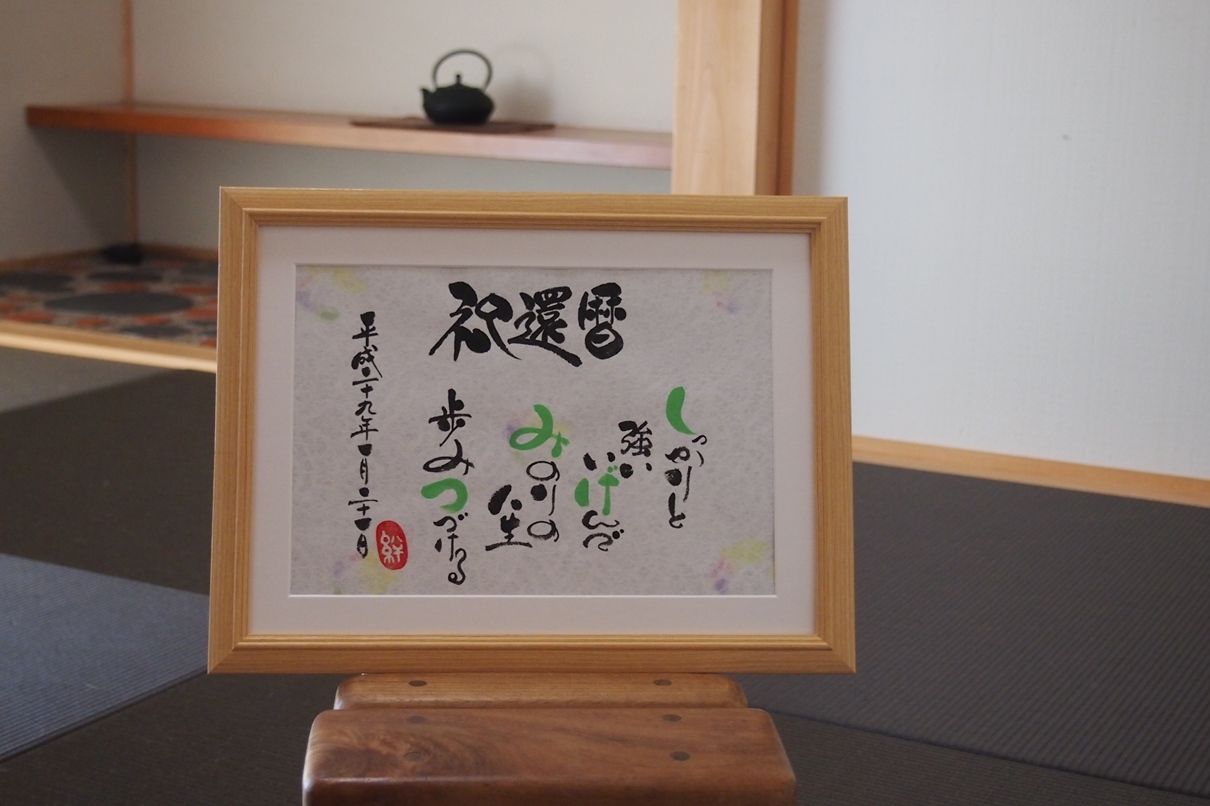 祝還暦
しっかりと
強い
いげんで
みのりの
人生
歩みつづける
平成二十九年一月二十一日
絆